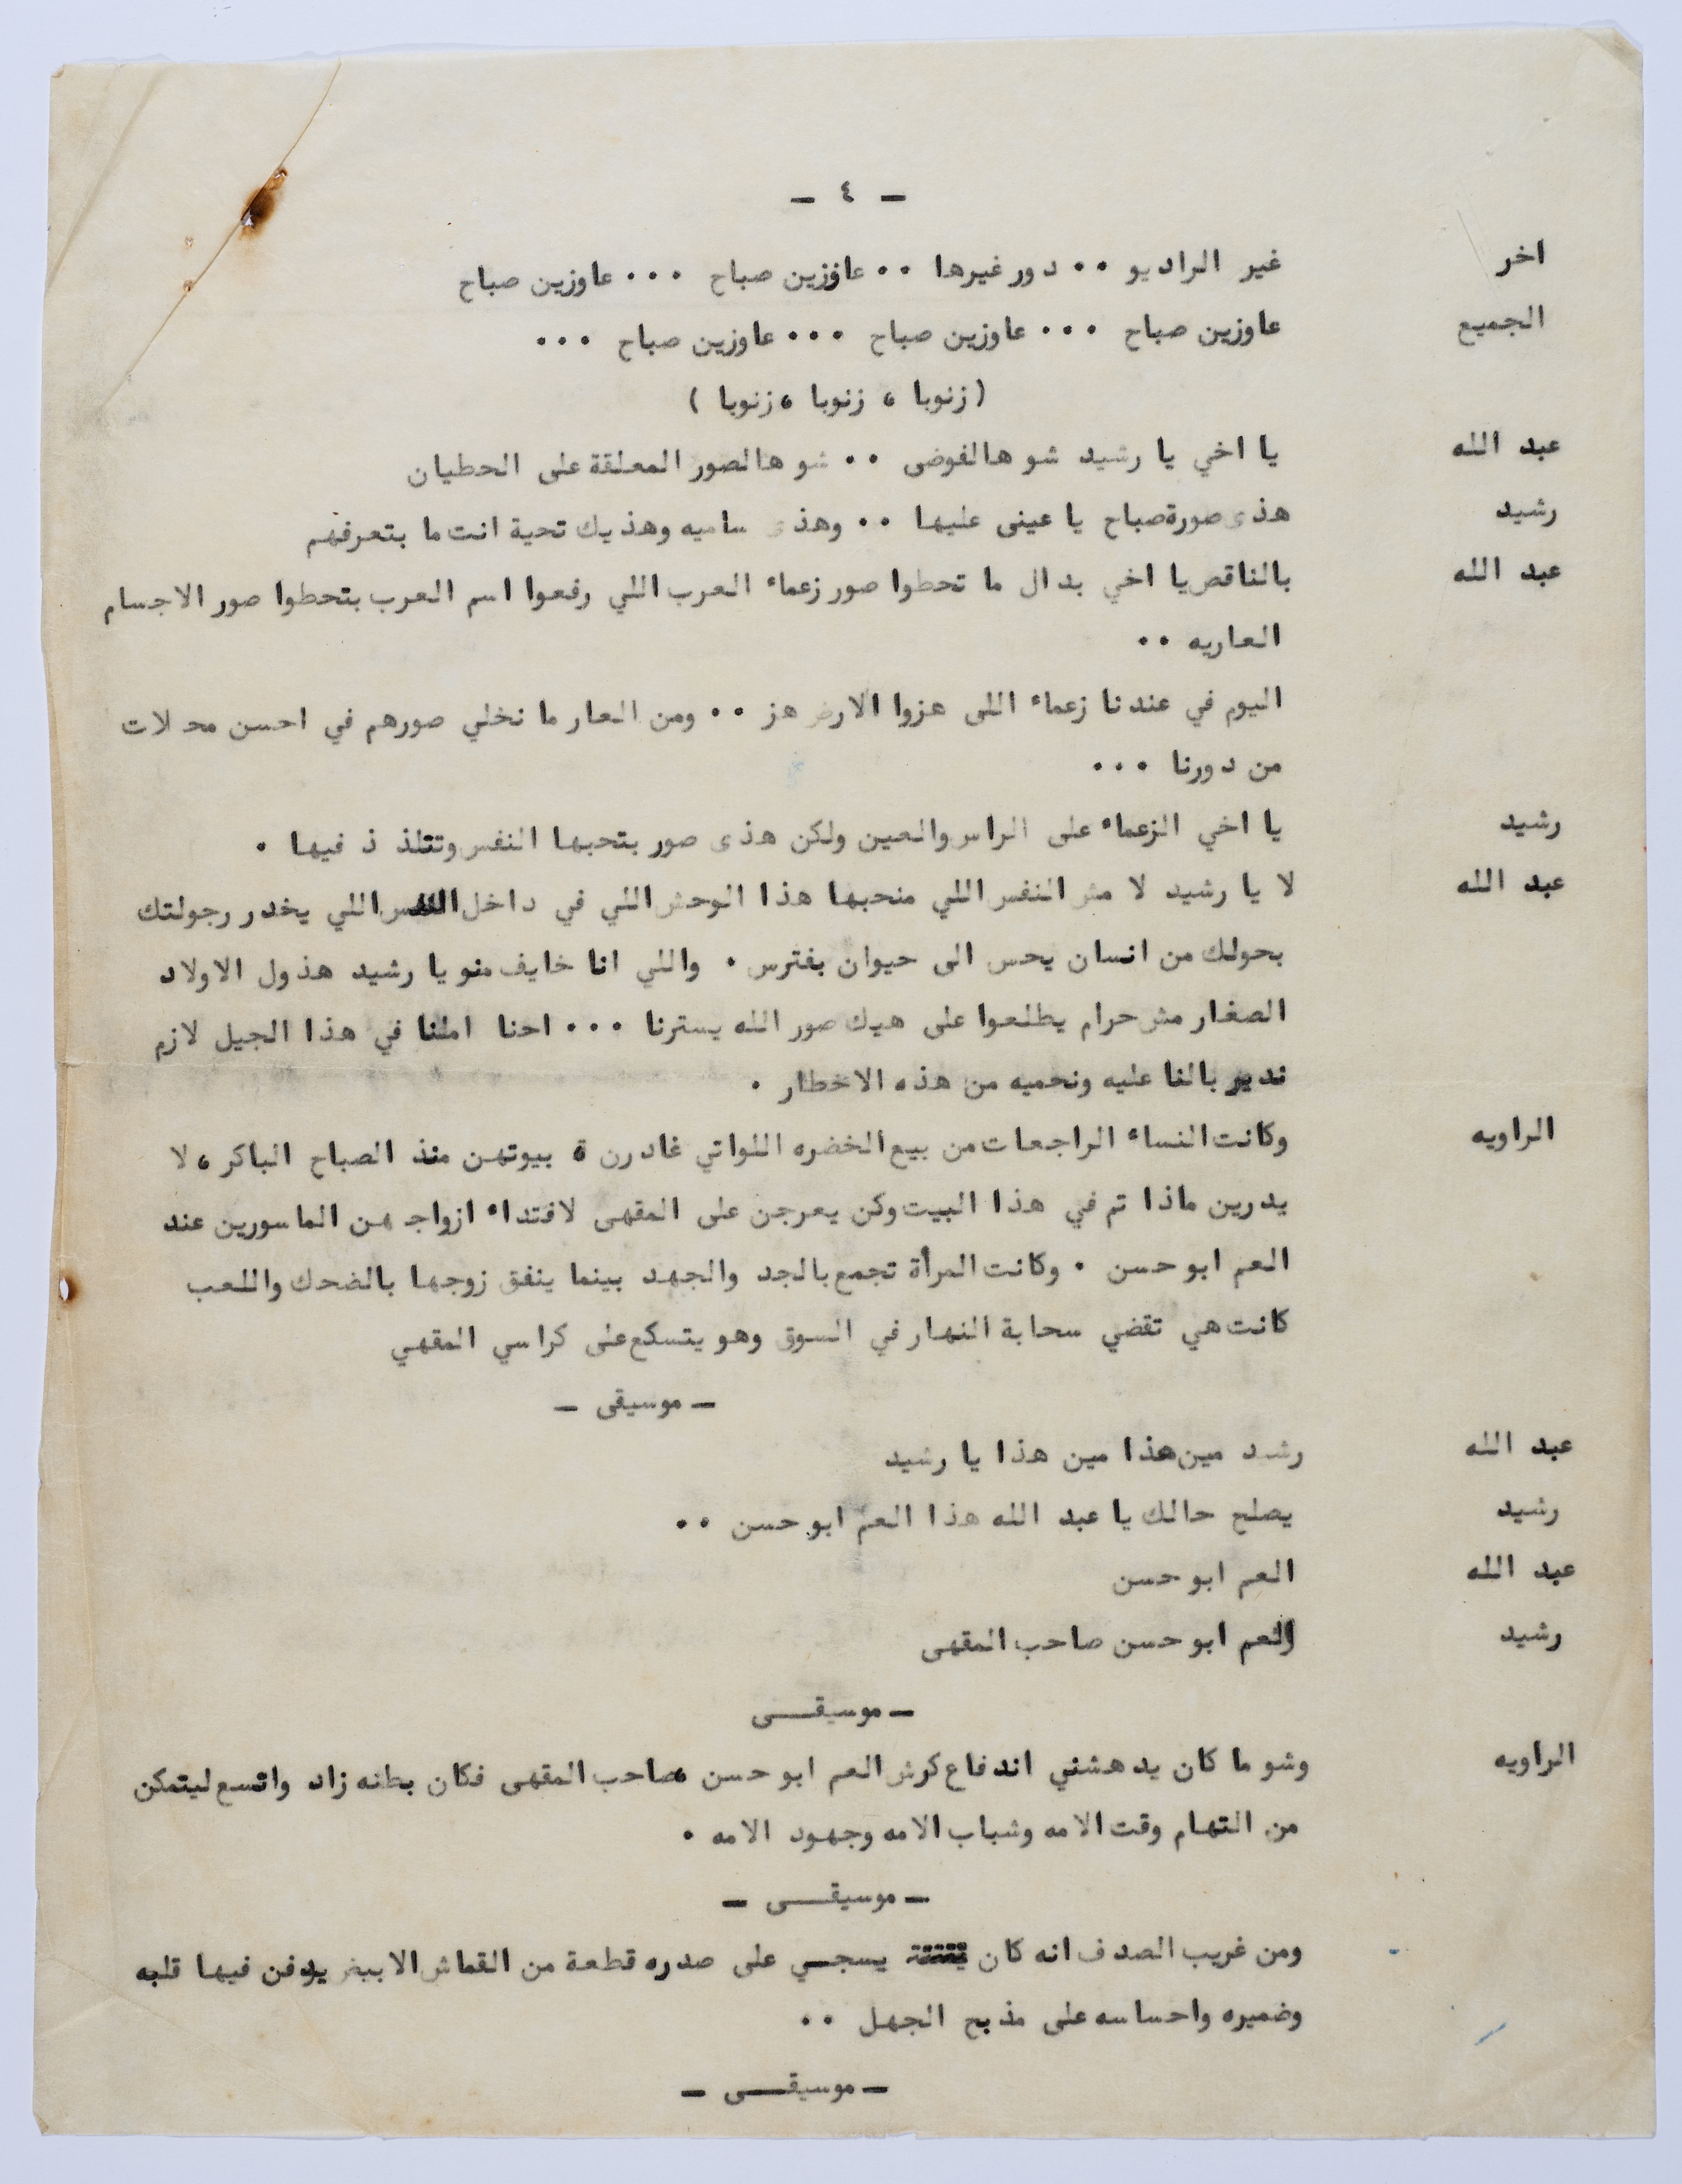 - ٤ -
اخر غير الراديو ٠٠ دور غيرها ٠٠ عاوزين صباح ٠٠٠ عاوزين صباح
الجميع عاوزين صباح ٠٠٠ عاوزين صباح ٠٠٠ عاوزين صباح ٠٠٠
( زنوبا ، زنوبا ، زنوبا )
عبد الله يا اخي يا رشيد شو هالفوضى ٠٠ شو هالصور المعلقة على الحطيان
رشيد هذى صورة صباح يا عينى عليها ٠٠ وهذى ساميه وهذيك تحية انت ما بتعرفهم
عبد الله بالناقص يا اخي بدال ما تحطوا صور زعماء العرب اللي رفعوا اسم العرب بتحطوا صور الاجسام
العاريه ٠٠
اليوم في عندنا زعماء اللى هزوا الارض هز ٠٠ ومن العار ما نخلي صورهم في احسن محلات
من دورنا ٠٠٠
رشيد يا اخي الزعماء على الراس والعين ولكن هذى صور بتحبها النفس وتتلذ ذ فيها ٠
عبد الله لا يا رشيد لا مش النفس اللي منحبها هذا الوحش اللي في داخل النفس اللي يخدر رجولتك
بحولك من انسان يحس الى حيوان بفترس ٠ واللي انا خايف منو يا رشيد هذول الاولاد
الصغار مش حرام يطلعوا على هيك صور الله يسترنا ٠٠٠ احنا املنا في هذا الجيل لازم
ندير بالنا عليه ونحميه من هذه الاخطار ٠
الراويه وكانت النساء الراجعات من بيع الخضره اللواتي غادرن ة بيوتهن منذ الصباح الباكر ، لا
يدرين ماذا تم في هذا البيت وكن يعرجن على المقهى لافتداء ازواجهن الماسورين عند
العم ابو حسن ٠ وكانت المرأة تجمع بالجد والجهد بينما ينفق زوجها بالضحك واللعب
كانت هي تقضي سحابة النهار في السوق وهو يتسكع على كراسي المقهي
- موسيقى -
عبد الله رشد مين هذا مين هذا يا رشيد
رشيد يصلح حالك يا عبد الله هذا العم ابو حسن ٠٠
عبد الله العم ابو حسن
رشيد العم ابو حسن صاحب المقهى
- موسيقــى
الراويه وشو ما كان يدهشني اندفاع كرش العم ابو حسن صاحب المقهى فكان بطنه زاد واتسع ليتمكن
من التهام وقت الامه وشباب الامه وجهود الامه ٠
- موسيقــى -
ومن غريب الصدف انه كان يسجي على صدره قطعة من القماش الابيض يدفن فيها قلبه
وضميره واحساسه على مذبح الجهل ٠٠
- موسيقــى -